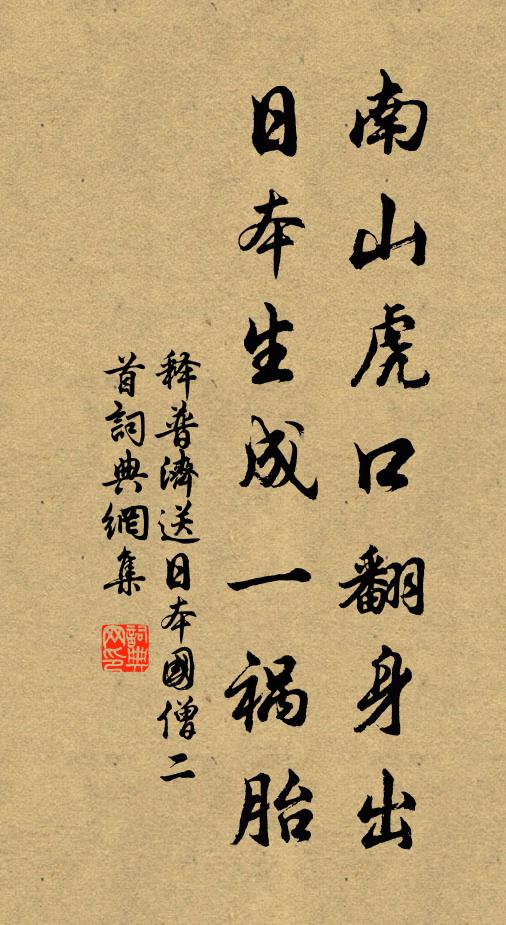 南山虎口翻身出
日本生成一禍胎
釋普濟送日本國僧二
首詞典網集
詞典
网印